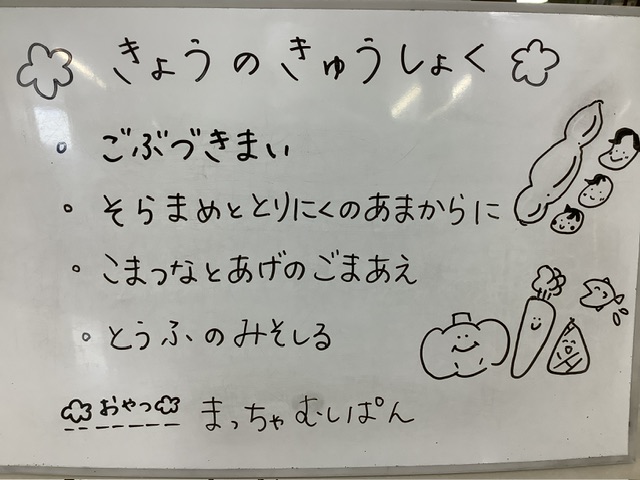 きょうのきゅうしょく
ごぶづきまい
そらまめととりにくのあまからに
こまつなとあげのごまあえ
とうふのみそしる
おやつ まっちゃむしぱん